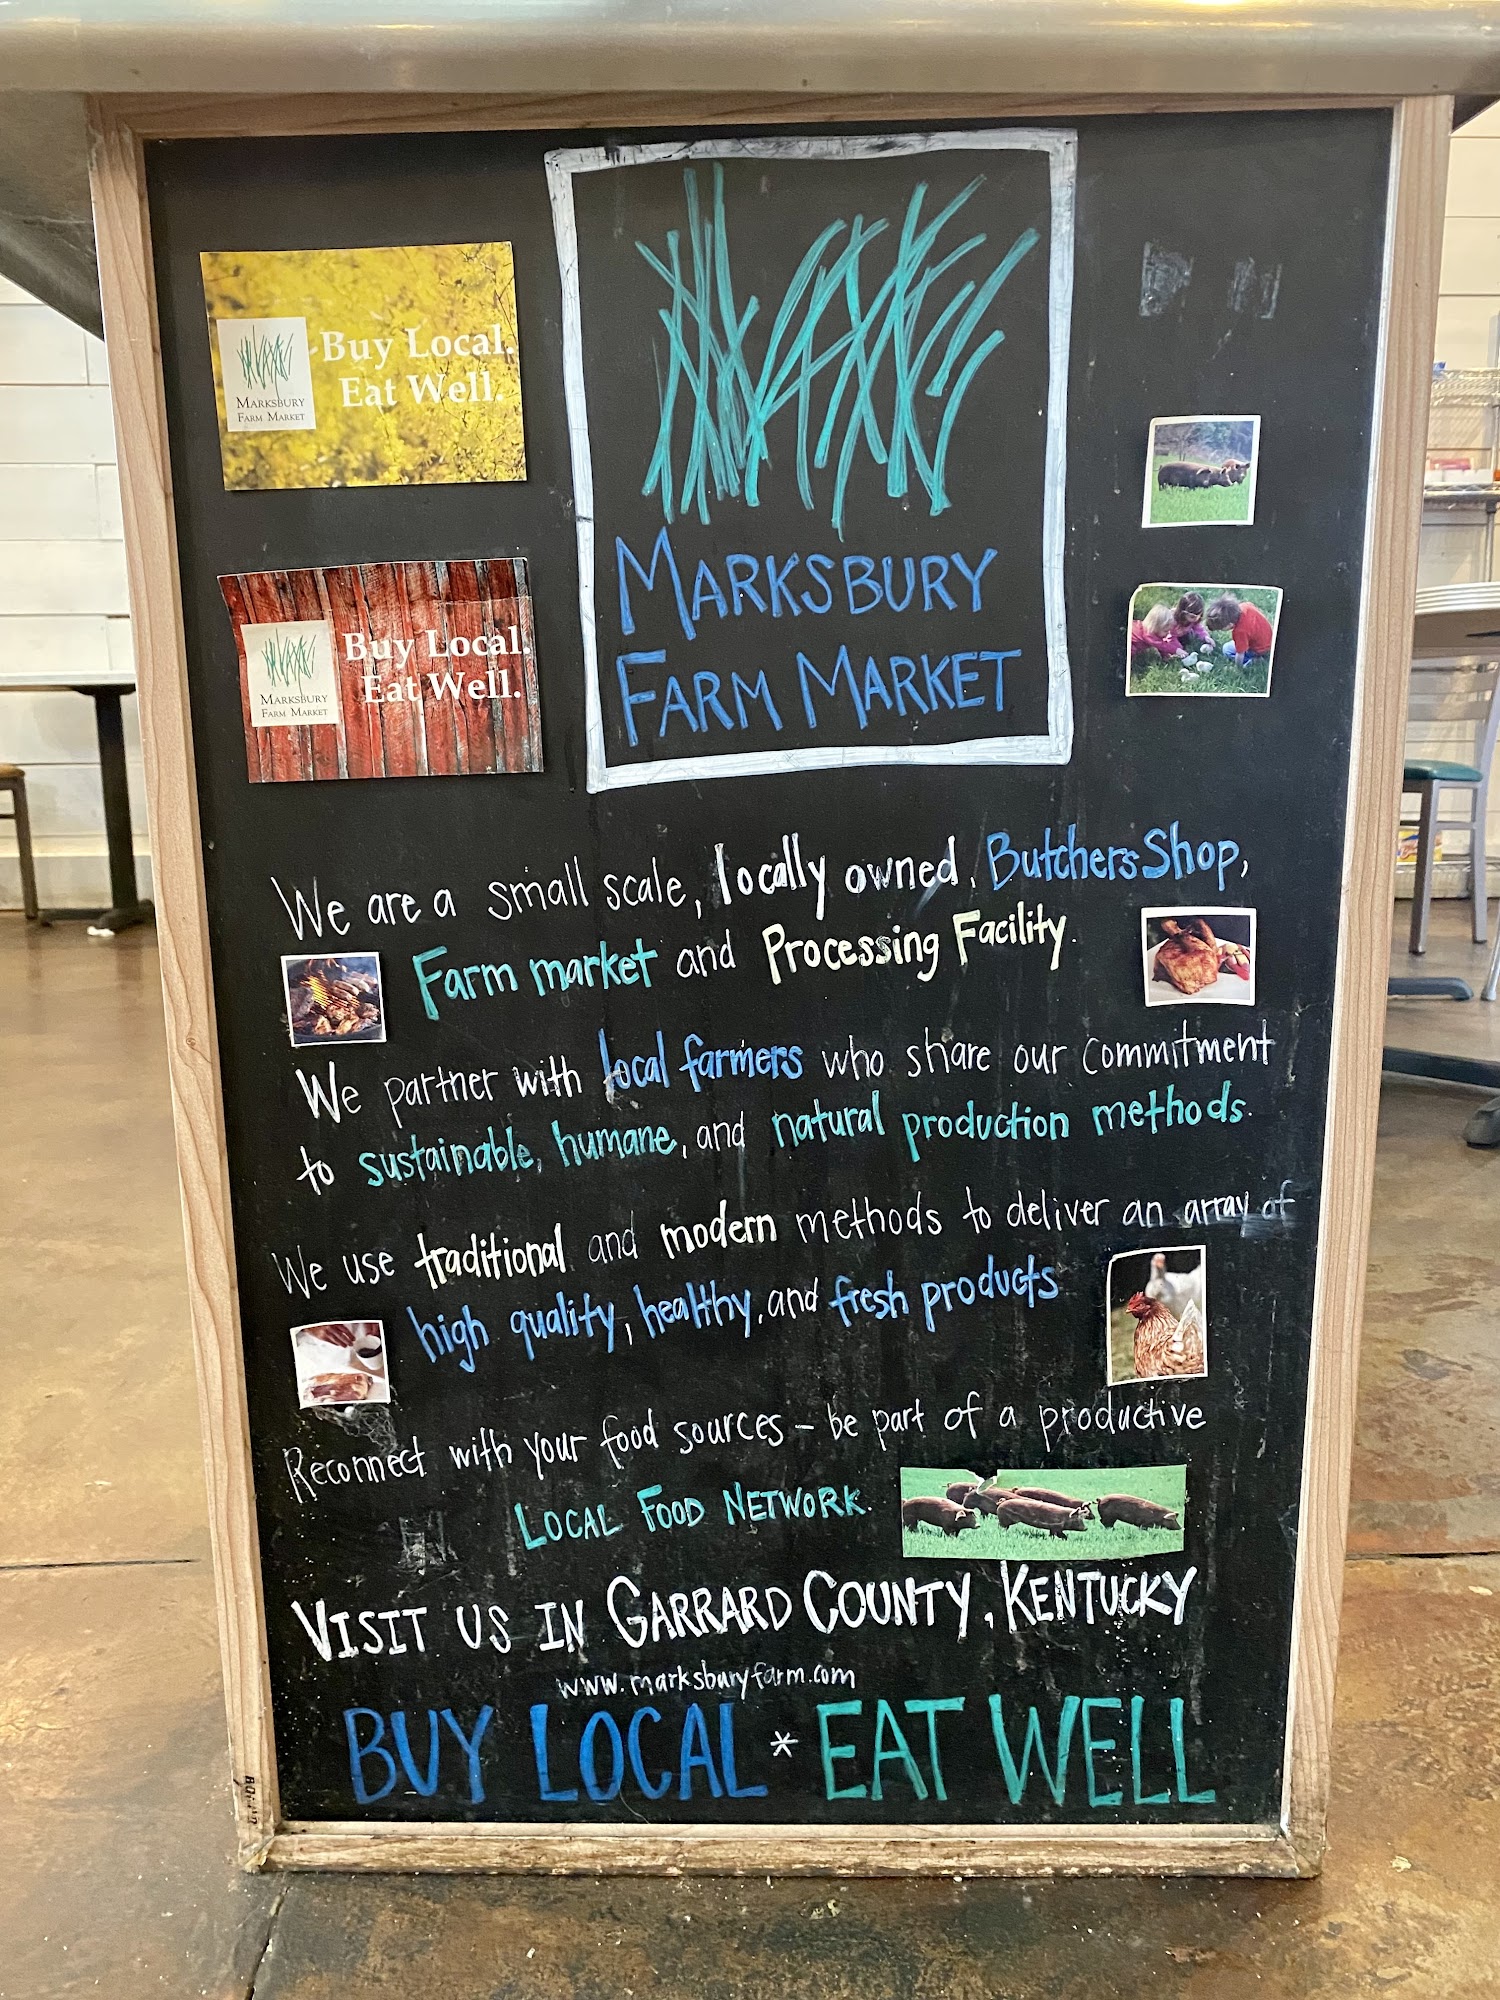 Buy Local.
Eat Well.
MARKSBURY
FARM MARKET
Buy Local.
Eat Well.
MARKSBURY
FARM MARKET
MARKSBURY
FARM MARKET
We are a small scale, locally owned, Butchers Shop,
Farm market and Processing Facility.
We partner with local farmers who share our commitment
to sustainable, humane, and natural production methods.
We use traditional and modern methods to deliver an array of
high quality, healthy, and fresh products
Reconnect with your food sources - be part of a productive
LOCAL FOOD NETWORK.
VISIT US IN GARRARD COUNTY, KENTUCKY
www.marksburyfarm.com
BUY LOCAL * EAT WELL